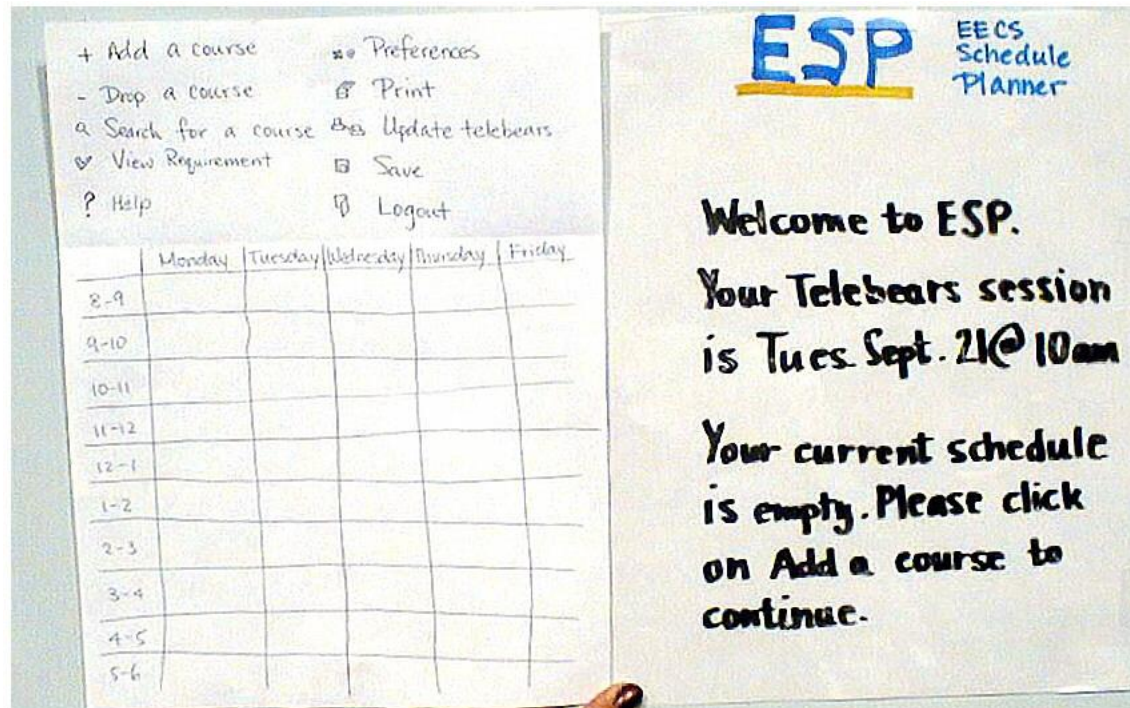 + Add a course
- Drop a course
Search for a course
View Requirement
? Help
Preferences
Print
Update telebears
Save
Logout
Monday Tuesday Wednesday Thursday Friday
8-9
9-10
10-11
11-12
12-1
1-2
2-3
3-4
4-5
5-6
ESP
EECS
Schedule
Planner
Welcome to ESP.
Your Telebears session
is Tues Sept. 21@10am
Your current schedule
is empty. Please click
on Add a course to
continue.